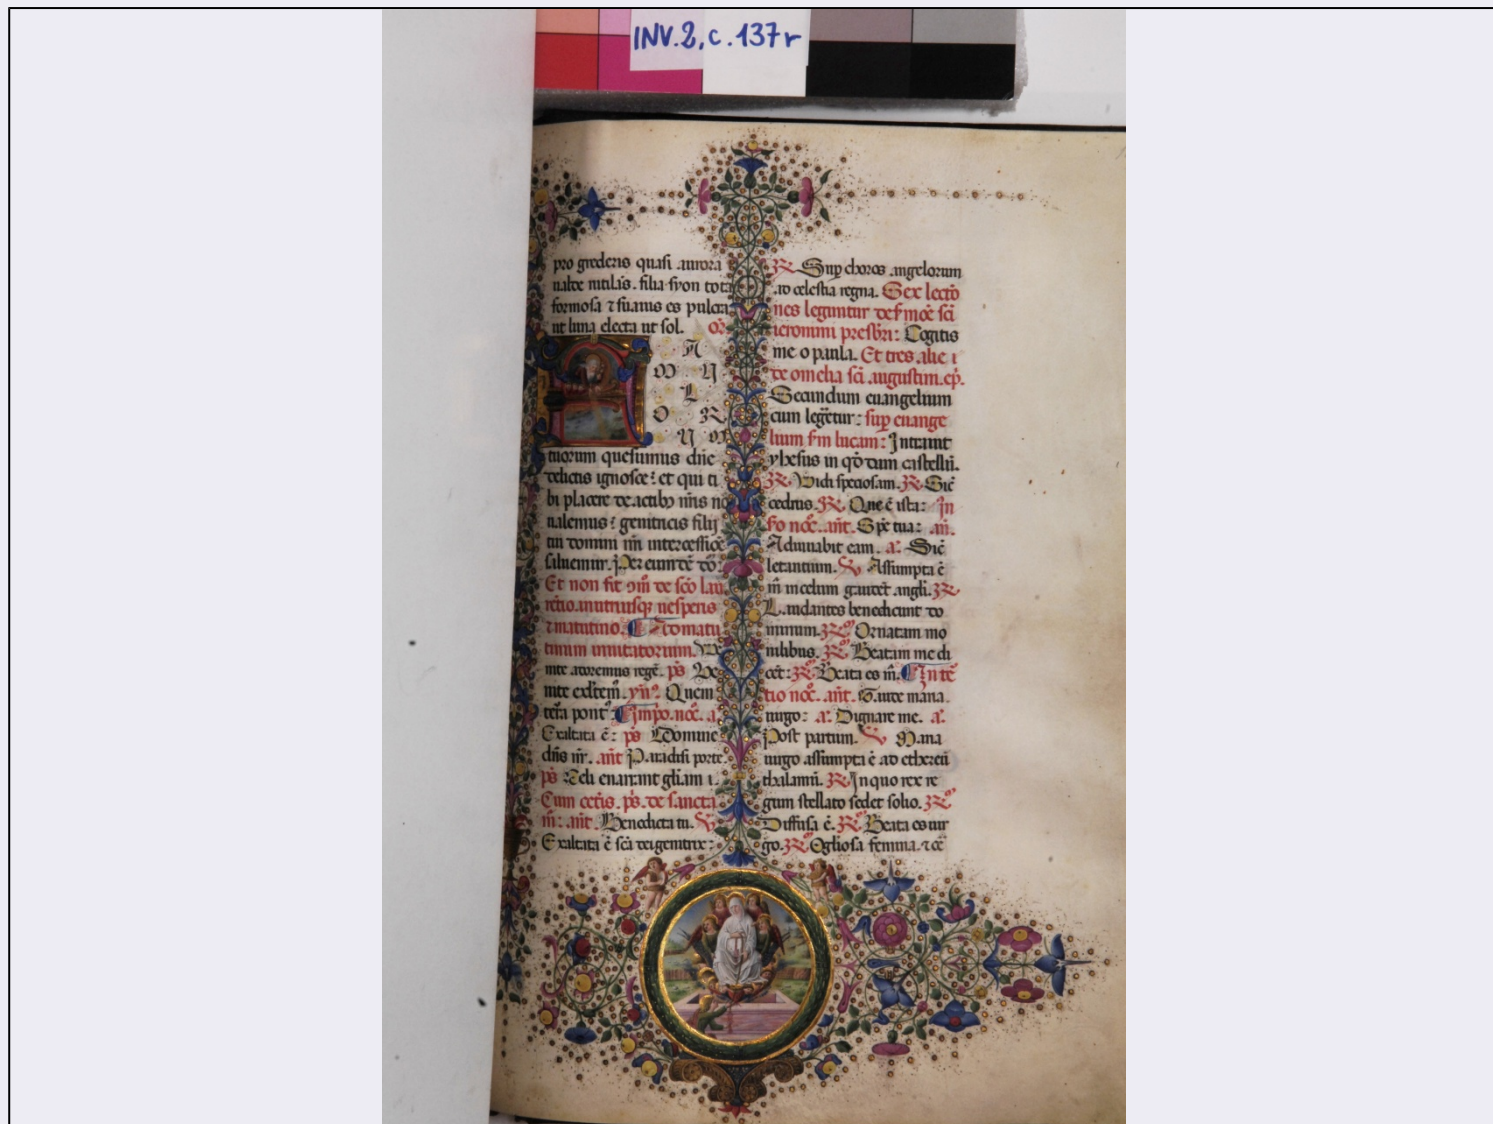 INV. 2, c. 137 r
pro grederis quasi aurora
ualde rutilãs. filia syon tota
formosa ⁊ suauis es pulcra
ut luna electa ut sol. or̃
tuorum quesumus dñe
delictis ignosce: et qui ti
bi placere de actibꝫ nr̃is no
ualemus: genitricis filij
tui domini nr̃i intercessiõe
saluemur. Per eumdẽ dõ
Et non fit de sc̃o lau
rẽtio. in utriusqꝫ uesperis
⁊ matutino. Ad matu
tinum inuitatorium. Ve
nite adoremus regẽ. ps̃ Ve
nite yñ. Quem
terra põt. In po. noc̃. a.
Exaltata ẽ: ps̃ Domine
dñs nr̃. añt Paradisi porte.
ps̃ Celi enarrant gl̃iam
Cum cetis. ps̃. de sancta
m̃: añt. Benedicta tu. ℣
Exaltata ẽ sc̃a dei genitrix:
℟ Sup̱ choros angelorum
ad celestia regna. Sex lectõ
nes leguntur de sc̃i
ieronimi presbr̃i: Cogitis
me o paula. Et tres alie
de omelia sc̃i augustini. ep̃.
Secundum euangelium
cum legẽtur: sup̱ euange
lium lucam: Intrauit
yhesus in castellũ.
℟. Vidi speciosam. ℟. Sic̃
cedrus. ℟. Que ẽ ista: In
noc̃. añt. Sp̃e tua: añ.
Adiuuabit eam. a. Sic̃
letantium. ℣ Assumpta ẽ
m̃ in celum gaudẽt angl̃i. ℟
Laudantes benedicunt do
minum. ℟ Ornatam mo
nilibus. ℟ Beatam me di
cẽt: ℟ Beata es m̃. In ter̃
tio noc̃. añt. Gaude maria
uirgo: a. Dignare me. a.
Post partum. ℣ Maria
uirgo assumpta ẽ ad ethereũ
thalamũ. ℟ In quo rex re
gum stellato sedet solio. ℟
Diffusa ẽ. ℟ Beata es uir
go. ℟ O gl̃iosa femina.